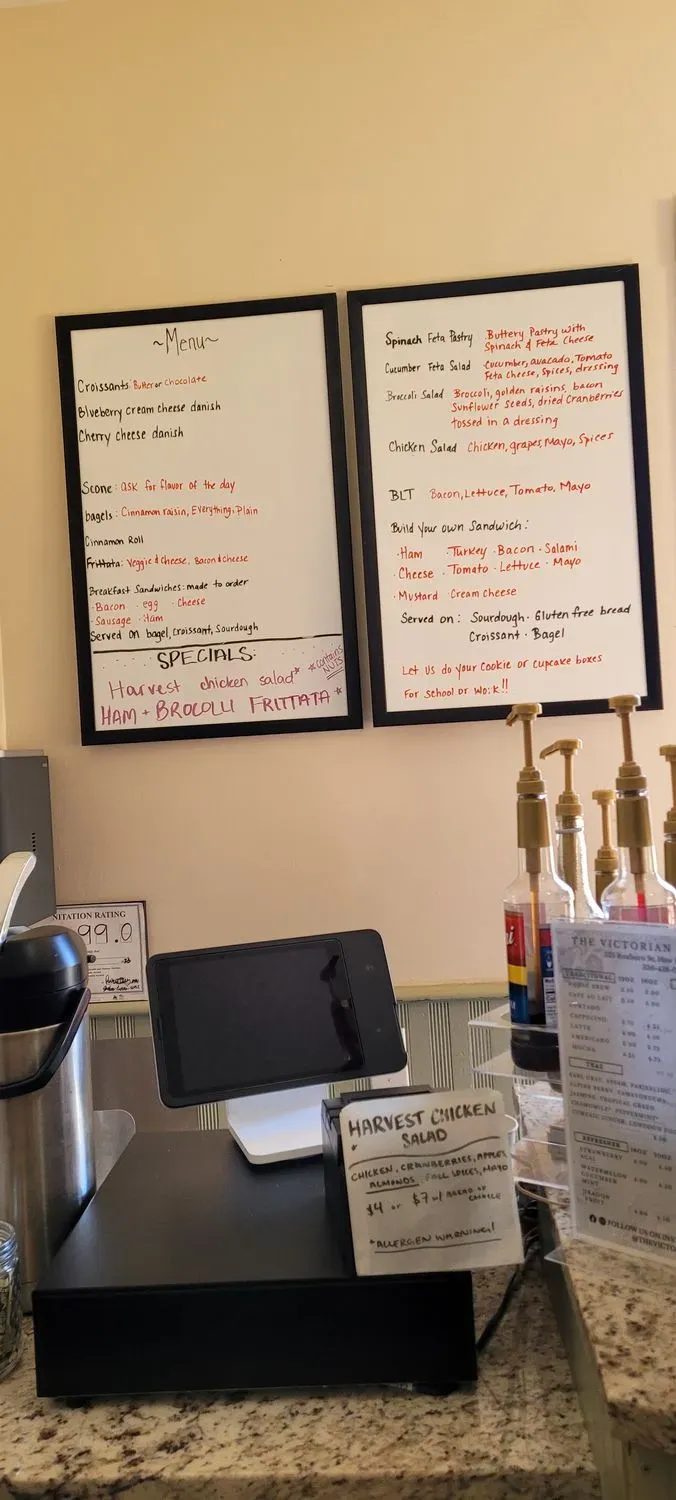 ~Menu~
Croissants Butter or Chocolate
Blueberry cream cheese danish
Cherry cheese danish
Scone: ask for flavor of the day
bagels: Cinnamon raisin, Everything, Plain
Cinnamon Roll
Frittata: Veggie & Cheese, Bacon & cheese
Breakfast Sandwiches: made to order
· Bacon · egg · Cheese
· Sausage · Ham
Served on bagel, croissant, Sourdough
SPECIALS:
Harvest chicken salad* *contains
NUTS
HAM + BROCOLLI FRITTATA *
Spinach Feta Pastry Buttery Pastry with
Spinach & Feta Cheese
Cucumber Feta Salad Cucumber, avacado, Tomato
Feta cheese, Spices, dressing
Broccoli Salad Broccoli, golden raisins, bacon
Sunflower Seeds, dried Cranberries
tossed in a dressing
Chicken Salad Chicken, grapes, Mayo, Spices
BLT Bacon, Lettuce, Tomato, Mayo
Build your own Sandwich:
· Ham · Turkey · Bacon · Salami
· Cheese · Tomato · Lettuce · Mayo
· Mustard · Cream cheese
Served on: Sourdough · Gluten free bread
Croissant · Bagel
Let us do your Cookie or cupcake boxes
For school or work!!
NITATION RATING
99.0
HARVEST CHICKEN
* SALAD
CHICKEN, CRANBERRIES, APPLES
ALMONDS, FALL SPICES, MAYO
$4 or $7 w/ BREAD OF
CHOICE
*ALLERGEN WARNING!
THE VICTORIAN
TRADITIONAL 12OZ 16OZ
CAFE AU LAIT
CORTADO
CAPPUCINO
LATTE
AMERICANO
MOCHA
TEAS
REFRESHER
STRAWBERRY
ACAI
WATERMELON
CUCUMBER
MINT
DRAGON
FRUIT
FOLLOW US ON
@THEVICTO